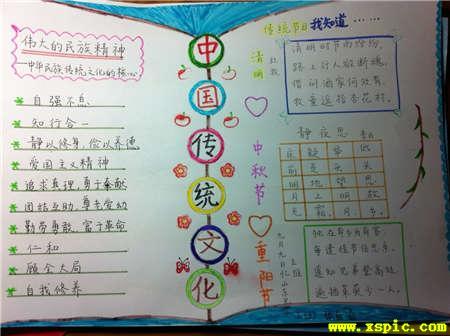 伟大的民族精神
——中华民族传统文化的核心
自强不息
知行合一
静以修身,俭以养德
爱国主义精神
追求真理,勇于奉献
团结互助,尊老爱幼
勤劳勇敢,富于革命
仁和
顾全大局
自我修养
中国传统文化
传统节日我知道…
清明
杜牧
清明时节雨纷纷,
路上行人欲断魂。
借问酒家何处有,
牧童遥指杏花村。
中秋节
静夜思
床疑举低
前是头头
明地望思
月上明故
光霜月乡
重阳节
九月九日忆山东兄弟
王维
独在异乡为异客,
每逢佳节倍思亲。
遥知兄弟登高处,
遍插茱萸少一人。
www.xspic.com